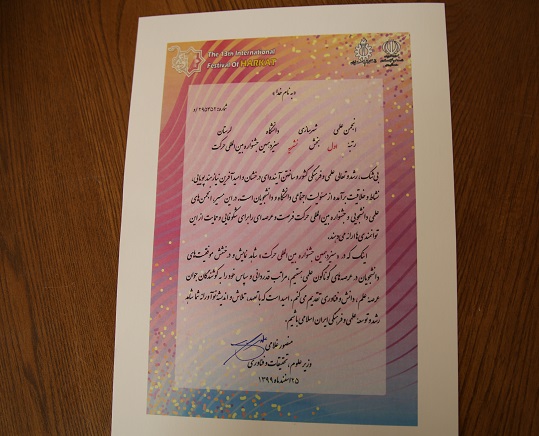 The 13th International
Festival Of HARKAT
«به نام خدا»
انجمن علمی شهرسازی دانشگاه لرستان
رتبهٔ اول بخش نشریه سیزدهمین جشنواره بین‌المللی حرکت
بی‌شک، رشد و تعالی علمی و فرهنگی کشور و ساختن آینده‌ای درخشان و امیدآفرین نیازمند پویایی،
نشاط و خلاقیت برآمده از مسئولیت اجتماعی دانشگاه و دانشجویان است. در این مسیر، انجمن‌های
علمی دانشجویی و جشنواره بین‌المللی حرکت فرصت و عرصه‌ای را برای شکوفایی و حمایت از این
توانمندی‌ها ارائه می‌دهند.
اینک که در «سیزدهمین جشنواره بین‌المللی حرکت»، شاهد نمایش و درخشش موفقیت‌های
دانشجویان در عرصه‌های گوناگون علمی هستیم، مراتب قدردانی و سپاس خود را به کوشندگان جوان
عرصه علم، دانش و فناوری تقدیم می‌کنم. امید است که با تعهد، تلاش و اندیشه نوآورانه شما شاهد
رشد و توسعهٔ علمی و فرهنگی ایران اسلامی باشیم.
منصور غلامی
وزیر علوم، تحقیقات و فناوری
۲۵ اسفند ماه ۱۳۹۹